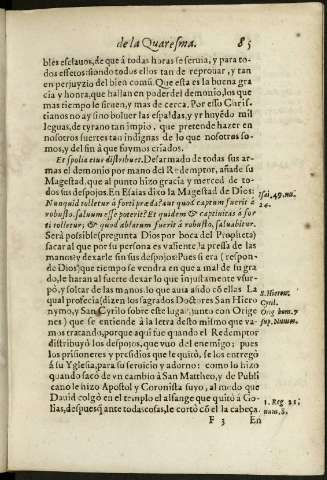 de la Quaresma. 85
bles esclauos, de que â todas horas se seruia, y para to-
dos effetos: siendo todos ellos tan de reprouar, y tan
en perjuyzio del bien comũ. Que esta es la buena gra
cia y honra, que hallan en poder del demonio, los que
mas tiempo le siruen, y mas de cerca. Por esso Chris-
tianos no ay sino boluer las espaldas, y yr huyẽdo mil
leguas, de tyrano tan impio, que pretende hazer en
nosotros suertes tan indignas de lo que nosotros so-
mos, y del fin â que fuymos criados.
Et spolia eius distribuet. Desarmado de todas sus ar-
mas el demonio por mano del Redemptor, añade su
Magestad, que al punto hizo gracia y merced de to-
dos sus despojos. En Esaias dixo la Magestad de Dios:
Nunquid tolletur à forti præda? aut quod captum fuerit à
robusto, saluum esse poterit? Et quidem & captiuitas à for
ti tolletur, & quod ablatum fuerit à robusto, saluabitur.
Será possible (pregunta Dios por boca del Propheta)
sacar al que por su persona es valiente, la presa de las
manos? y dexarle sin sus despojos? Pues si era (respon-
de Dios) que tiempo se vendra en que a mal de su gra
do, le haran al fuerte dexar lo que injustamente vsur-
pò, y soltar de las manos lo que auia asido cõ ellas La
qual profecia (dizen los sagrados Doctores San Hiero
nymo, y San Cyrilo sobre este lugar, junto con Orige
nes) que se entiende â la letra desto mismo que va-
mos tratando, porque aqui fue quando el Redemptor
distribuyò los despojos, que vuo del enemigo; pues
los prisioneros y presidios que le quitò, se los entregò
â su Yglesia, para su seruicio y adorno: como lo hizo
quando sacò de vn cambio à San Mattheo, y de Publi
cano le hizo Apostol y Coronista suyo, al modo que
Dauid colgò en el templo el alfange que quitò â Go-
lias, despues q̃ ante todas cosas, le cortò cõ el la cabeça.
F 3 En
Isai. 49. nu.
24.
S. Hieron.
Cyril.
Orig. hom. 7
sup. Num.
1. Reg. 21;